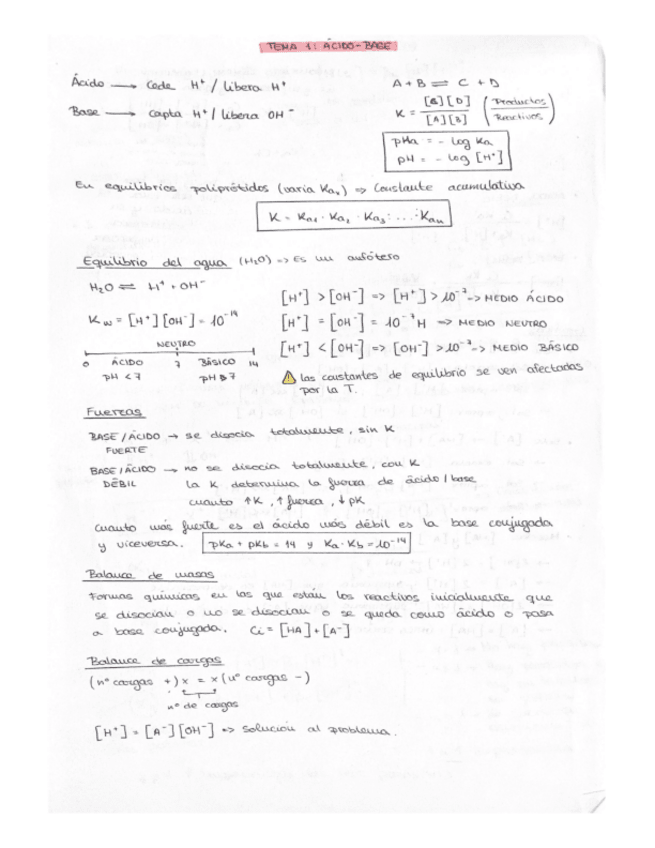 TEMA 1: ÁCIDO-BASE
Ácido → Cede H⁺ / libera H⁺
Base → Capta H⁺ / libera OH⁻
A + B ⇌ C + D
K = [C][D] / [A][B] (Productos / Reactivos)
pHa = - log Ka
pH = - log [H⁺]
En equilibrios polipróticos (varia Kax) ⇒ Constante acumulativa
K = Ka1 · Ka2 · Ka3 · ... · Kan
Equilibrio del agua (H₂O) => Es un anfótero
H₂O ⇌ H⁺ + OH⁻
Kw = [H⁺][OH⁻] = 10⁻¹⁴
NEUTRO
0 ÁCIDO 7 BÁSICO 14
pH < 7 pH > 7
[H⁺] > [OH⁻] => [H⁺] > 10⁻⁷ -> MEDIO ÁCIDO
[H⁺] = [OH⁻] = 10⁻⁷ M => MEDIO NEUTRO
[H⁺] < [OH⁻] => [OH⁻] > 10⁻⁷ -> MEDIO BÁSICO
⚠ las constantes de equilibrio se ven afectadas
por la T.
Fuerzas
BASE / ÁCIDO → se disocia totalmente, sin K
FUERTE
BASE / ÁCIDO → no se disocia totalmente, con K
DÉBIL la K determina la fuerza de ácido / base
cuanto ↑K, ↑fuerza, ↓pK
cuanto más fuerte es el ácido más débil es la base conjugada
y viceversa. pKa + pKb = 14 y Ka · Kb = 10⁻¹⁴
Balance de masas
Formas químicas en las que están los reactivos inicialmente que
se disocian o no se disocian o se queda como ácido o pasa
a base conjugada. Ci = [HA] + [A⁻]
Balance de cargas
(nº cargas +) x = x (nº cargas -)
nº de cargas
[H⁺] = [A⁻][OH⁻] => solución al problema.